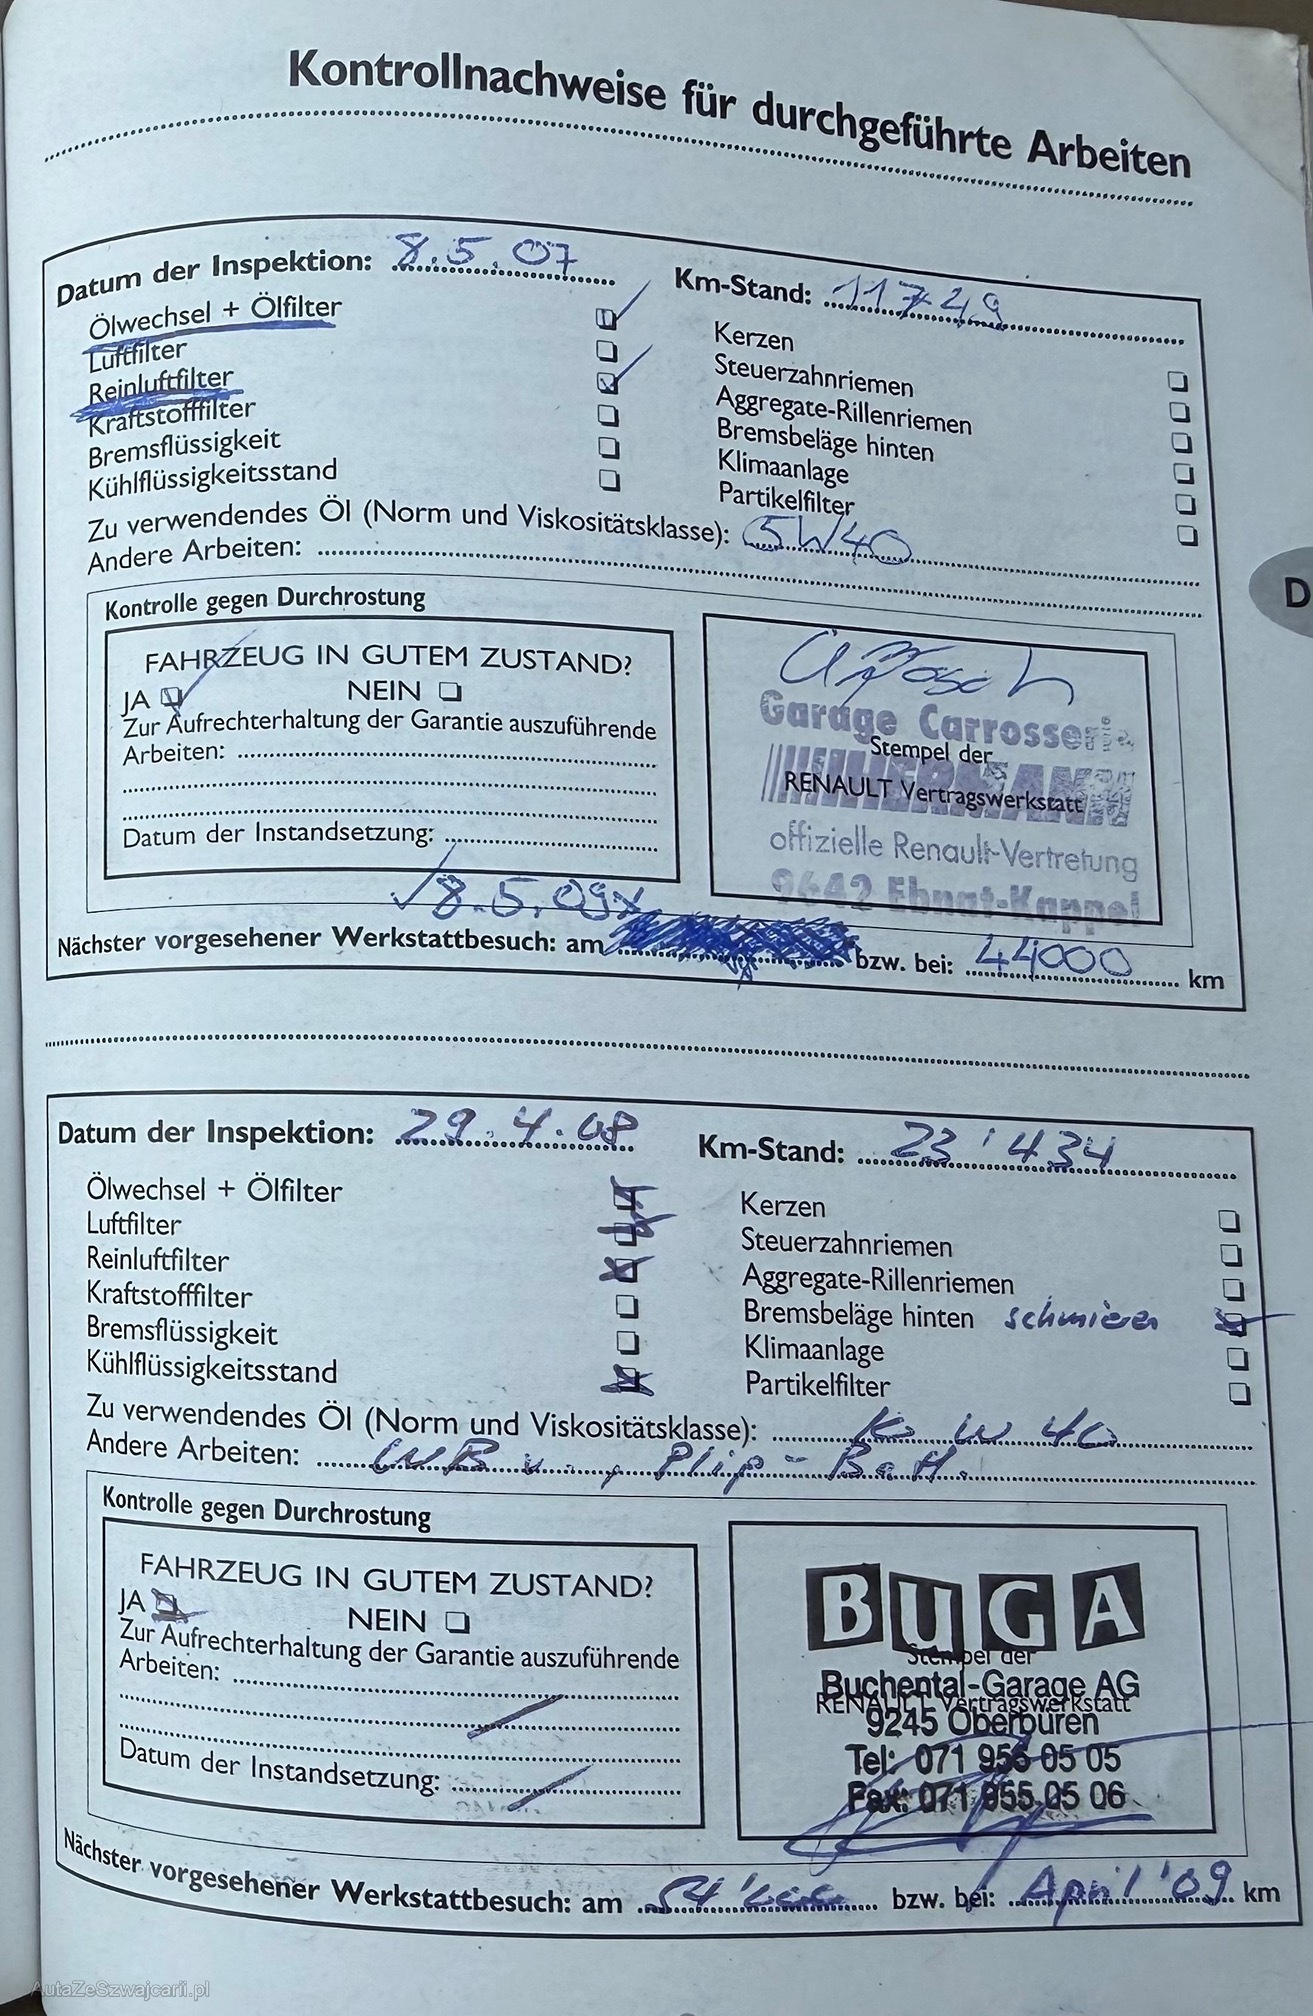 Kontrollnachweise für durchgeführte Arbeiten
Datum der Inspektion: 8.5.07 Km-Stand: 11749
Ölwechsel + Ölfilter Kerzen
Luftfilter Steuerzahnriemen
Reinluftfilter Aggregate-Rillenriemen
Kraftstofffilter Bremsbeläge hinten
Bremsflüssigkeit Klimaanlage
Kühlflüssigkeitsstand Partikelfilter
Zu verwendendes Öl (Norm und Viskositätsklasse): 5W40
Andere Arbeiten:
D
Kontrolle gegen Durchrostung
FAHRZEUG IN GUTEM ZUSTAND?
JA NEIN
Zur Aufrechterhaltung der Garantie auszuführende
Arbeiten:
Datum der Instandsetzung:
Garage Carrosserie
Stempel der
RENAULT Vertragswerkstatt
offizielle Renault-Vertretung
9642 Ebnat-Kappel
8.5.09
Nächster vorgesehener Werkstattbesuch: am bzw. bei: 44000 km
Datum der Inspektion: 29.4.08 Km-Stand: 23'434
Ölwechsel + Ölfilter Kerzen
Luftfilter Steuerzahnriemen
Reinluftfilter Aggregate-Rillenriemen
Kraftstofffilter Bremsbeläge hinten schmieren
Bremsflüssigkeit Klimaanlage
Kühlflüssigkeitsstand Partikelfilter
Zu verwendendes Öl (Norm und Viskositätsklasse): W 40
Andere Arbeiten: Plip-Batt.
Kontrolle gegen Durchrostung
FAHRZEUG IN GUTEM ZUSTAND?
JA NEIN
Zur Aufrechterhaltung der Garantie auszuführende
Arbeiten:
Datum der Instandsetzung:
BUGA
Stempel der
Buchental-Garage AG
RENAULT Vertragswerkstatt
9245 Oberbüren
Tel: 071 955 05 05
Fax: 071 955 05 06
Nächster vorgesehener Werkstattbesuch: am bzw. bei: April '09 km
AutaZeSzwajcarii.pl